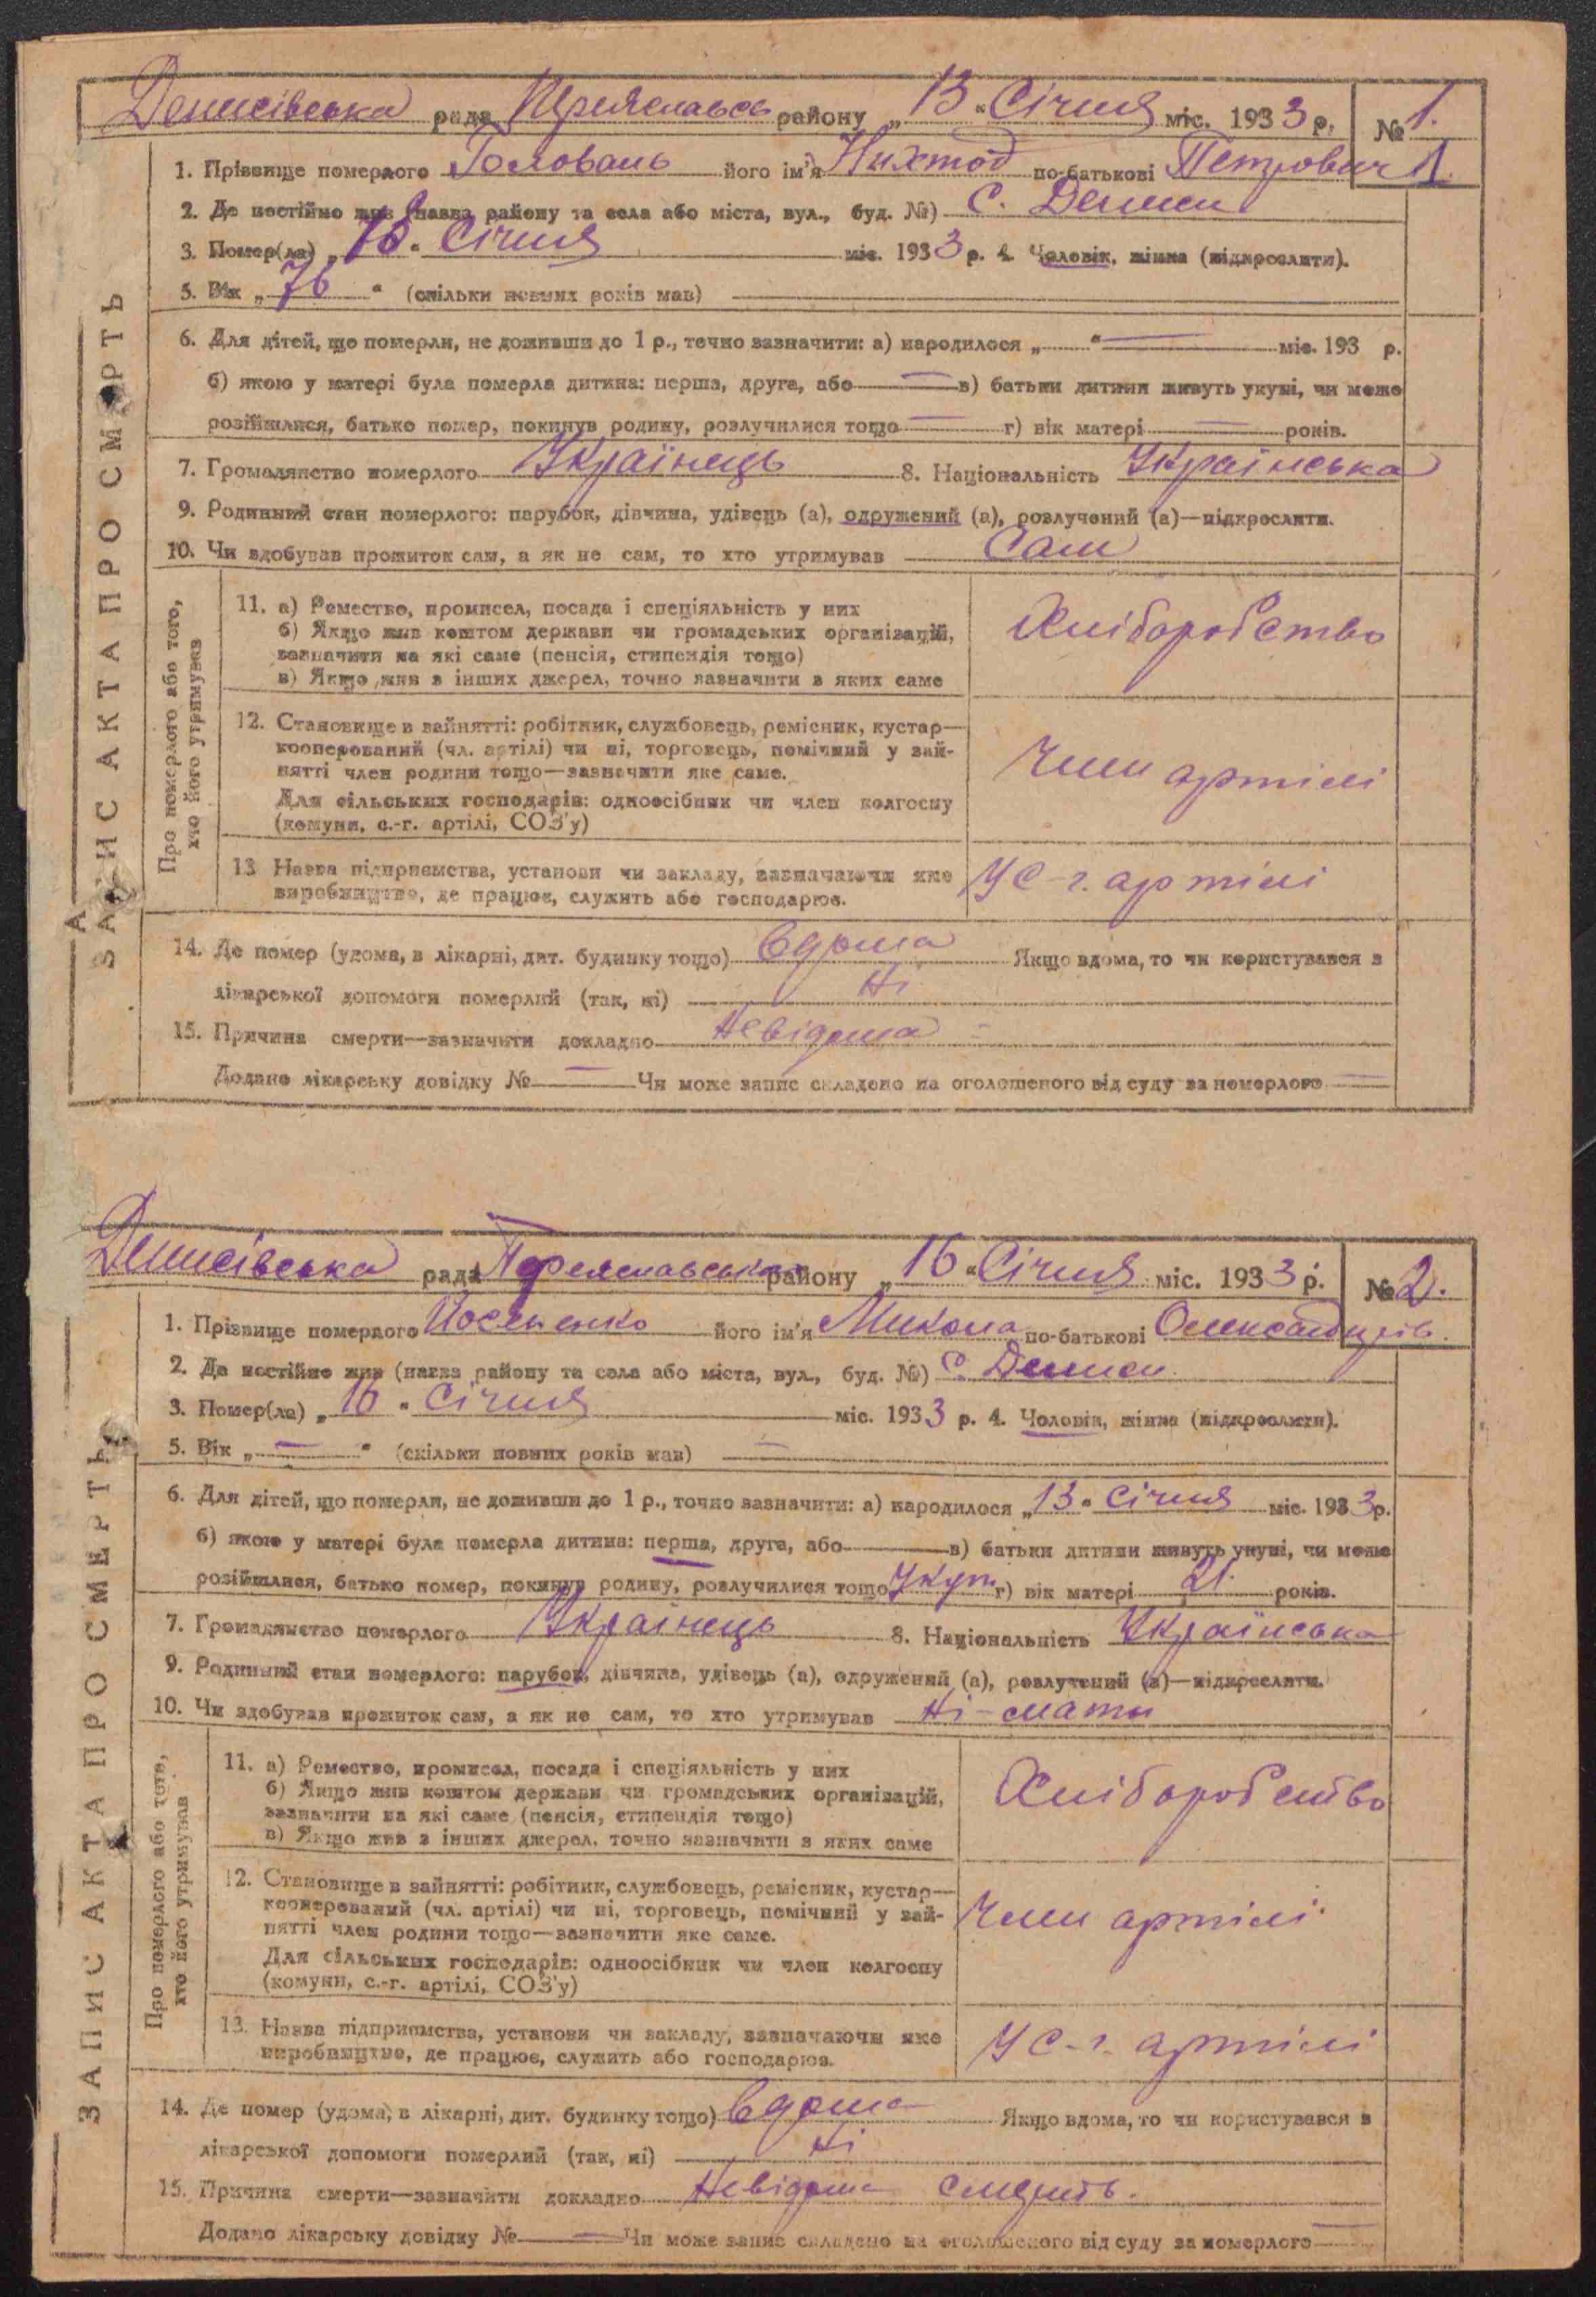 Денисівська рада Переяславськ району „13“ Січня міс. 1933 р. № 1.
1. Прізвище померлого Головань його ім'я по-батькові Петрович 1.
2. Де постійно жив (назва району та села або міста, вул., буд. №) С. Дениси
3. Помер(ла) Січня міс. 1933 р. 4. Чоловік, жінка (підкреслити).
5. Вік „76“ (скільки повних років мав)
6. Для дітей, що померли, не доживши до 1 р., точно зазначити: а) народилося „ “ — міс. 193 р.
б) якою у матері була померла дитина: перша, друга, або — в) батьки дитини живуть укупі, чи може
розійшлися, батько помер, покинув родину, розлучилися тощо — г) вік матері — років.
7. Громадянство померлого Українець 8. Національність Українська
9. Родинний стан померлого: парубок, дівчина, удівець (а), одружений (а), розлучений (а)—підкреслити.
10. Чи здобував прожиток сам, а як не сам, то хто утримував Сам
ЗАПИС АКТА ПРО СМЕРТЬ
Про померлого або того,
хто його утримував
11. а) Ремество, промисел, посада і спеціяльність у них
б) Якщо жив коштом держави чи громадських організацій,
зазначити на які саме (пенсія, стипендія тощо)
в) Якщо жив з інших джерел, точно зазначити з яких саме
Хліборобство
12. Становище в зайнятті: робітник, службовець, ремісник, кустар—
кооперований (чл. артілі) чи ні, торговець, помічний у зай-
нятті член родини тощо—зазначити яке саме.
Для сільських господарів: одноосібник чи член колгоспу
(комуни, с.-г. артілі, СОЗ'у)
Член артілі
13 Назва підприємства, установи чи закладу, зазначаючи яке
виробництво, де працює, служить або господарює.
У С-г. артілі
14. Де помер (удома, в лікарні, дит. будинку тощо) Вдома Якщо вдома, то чи користувався з
лікарської допомоги померлий (так, ні) Ні
15. Причина смерти—зазначити докладно Невідома -
Додано лікарську довідку № — Чи може запис складено на оголошеного від суду за померлого —
Денисівська рада Переяславськ району „16“ Січня міс. 1933 р. № 2.
1. Прізвище померлого Йосипенко його ім'я Микола по-батькові Олександрів.
2. Де постійно жив (назва району та села або міста, вул., буд. №) С. Дениси.
3. Помер(ла) „16“ Січня міс. 1933 р. 4. Чоловік, жінка (підкреслити).
5. Вік „—“ (скільки повних років мав) —
6. Для дітей, що померли, не доживши до 1 р., точно зазначити: а) народилося „13“ Січня міс. 1933 р.
б) якою у матері була померла дитина: перша, друга, або в) батьки дитини живуть укупі, чи може
розійшлися, батько помер, покинув родину, розлучилися тощо Укупі г) вік матері 21 років.
7. Громадянство померлого Українець 8. Національність Українська
9. Родинний стан померлого: парубок, дівчина, удівець (а), одружений (а), розлучений (а)—підкреслити.
10. Чи здобував прожиток сам, а як не сам, то хто утримував Ні - мати
ЗАПИС АКТА ПРО СМЕРТЬ
Про померлого або того,
хто його утримував
11. а) Ремество, промисел, посада і спеціяльність у них
б) Якщо жив коштом держави чи громадських організацій,
зазначити на які саме (пенсія, стипендія тощо)
в) Якщо жив з інших джерел, точно зазначити з яких саме
Хліборобство
12. Становище в зайнятті: робітник, службовець, ремісник, кустар—
кооперований (чл. артілі) чи ні, торговець, помічний у зай-
нятті член родини тощо—зазначити яке саме.
Для сільських господарів: одноосібник чи член колгоспу
(комуни, с.-г. артілі, СОЗ'у)
Член артілі
13. Назва підприємства, установи чи закладу, зазначаючи яке
виробництво, де працює, служить або господарює.
У С-г. артілі
14. Де помер (удома, в лікарні, дит. будинку тощо) Вдома Якщо вдома, то чи користувався з
лікарської допомоги померлий (так, ні) Ні
15. Причина смерти—зазначити докладно Невідома смерть.
Додано лікарську довідку № — Чи може запис складено на оголошеного від суду за померлого —